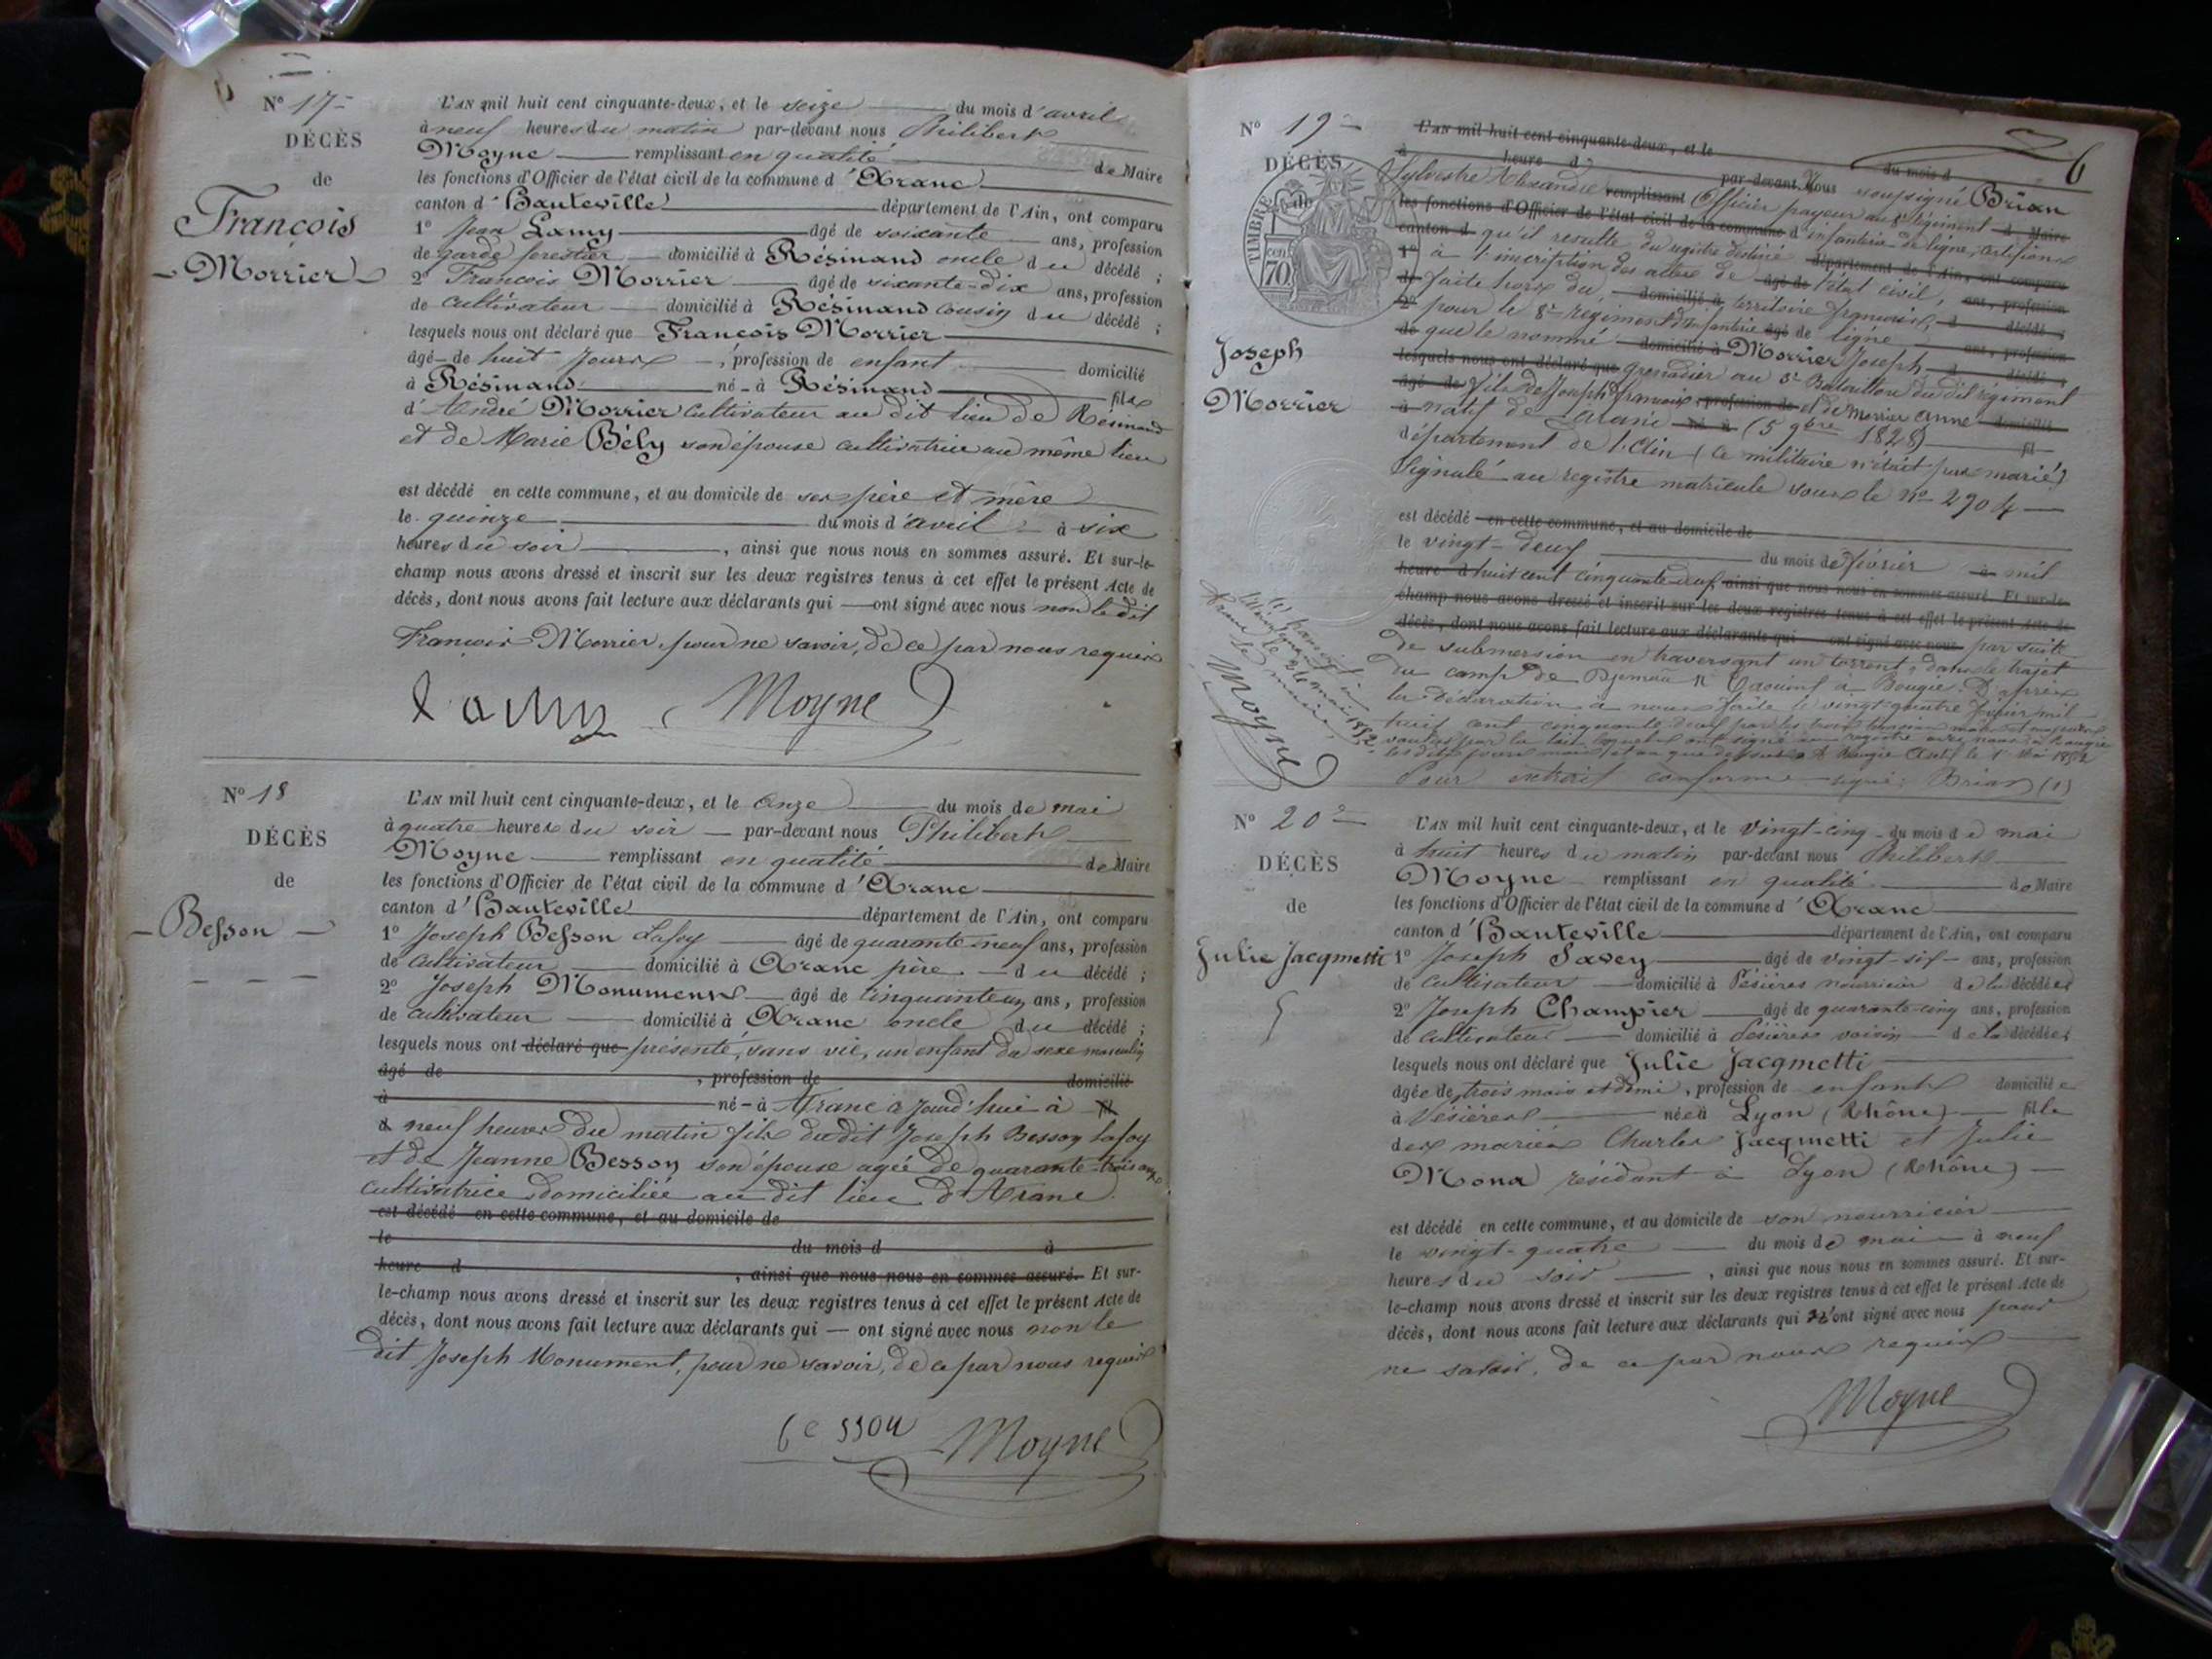 N° 17
DÉCÈS
de
François
Morrier
L'AN mil huit cent cinquante-deux, et le seize du mois d'avril
à neuf heures du matin par-devant nous Philibert
Moyne remplissant en qualité de Maire
les fonctions d'Officier de l'état civil de la commune d'Aranc
canton d'Hauteville département de l'Ain, ont comparu
1° Jean Lamy âgé de soixante ans, profession
de garde forestier domicilié à Résinand oncle du décédé ;
2° François Morrier âgé de soixante-dix ans, profession
de cultivateur domicilié à Résinand cousin du décédé ;
lesquels nous ont déclaré que François Morrier
âgé de huit jours, profession de enfant domicilié
à Résinand né à Résinand fils
d'André Morrier cultivateur au dit lieu de Résinand
et de Marie Bély son épouse cultivatrice au même lieu
est décédé en cette commune, et au domicile de ses père et mère
le quinze du mois d'avril à six
heures du soir, ainsi que nous nous en sommes assuré. Et sur-le-
champ nous avons dressé et inscrit sur les deux registres tenus à cet effet le présent Acte de
décès, dont nous avons fait lecture aux déclarants qui ont signé avec nous non le dit
François Morrier, pour ne savoir, de ce par nous requis
Lamy Moyne
N° 18
DÉCÈS
de
Besson
L'AN mil huit cent cinquante-deux, et le onze du mois de mai
à quatre heures du soir par-devant nous Philibert
Moyne remplissant en qualité de Maire
les fonctions d'Officier de l'état civil de la commune d'Aranc
canton d'Hauteville département de l'Ain, ont comparu
1° Joseph Besson Lafoy âgé de quarante neuf ans, profession
de cultivateur domicilié à Aranc père du décédé ;
2° Joseph Monument âgé de cinquante un ans, profession
de cultivateur domicilié à Aranc oncle du décédé ;
lesquels nous ont déclaré que présenté, sans vie, un enfant du sexe masculin
âgé de , profession de domicilié
à né à Aranc à jourd'hui à fil
d neuf heures du matin fils du dit Joseph Besson Lafoy
et de Jeanne Besson son épouse agée de quarante-trois ans
cultivatrice domiciliée au dit lieu d'Aranc.
est décédé en cette commune, et au domicile de
le du mois d à
heure d , ainsi que nous nous en sommes assuré. Et sur-
le-champ nous avons dressé et inscrit sur les deux registres tenus à cet effet le présent Acte de
décès, dont nous avons fait lecture aux déclarants qui — ont signé avec nous non le
dit Joseph Monument, pour ne savoir, de ce par nous requis
besson Moyne
6
N° 19
DÉCÈS
de
TIMBRE
70 cen
Joseph
Morrier
L'AN mil huit cent cinquante-deux, et le du mois d
à heure d par-devant Nous soussigné Brian
Sylvestre Alexandre remplissant Officier payeur au 8e régiment d Maire
les fonctions d'Officier de l'état civil de la commune d'infanterie de ligne, certifions
canton d qu'il resulte du registre destiné département de l'Ain, ont comparu
1° à l'inscription des actes de âgé de l'état civil, ans, profession
de faits hors du domicilié à territoire français, d décédé ;
2° pour le 8e régiment d'infanterie âgé de ligne ans, profession
de que le nommé domicilié à Morrier Joseph d décédé ;
lesquels nous ont déclaré que grenadier au 3e Bataillon du dit régiment
âgé de fils de Joseph françois, profession de et de Morrier anne domicilié
à natif de né à (5 9bre 1828) fil
département de l'Ain (ce militaire n'était pas marié)
Signalé au registre matricule sous le n° 2904
est décédé en cette commune, et au domicile de
le vingt-deux du mois de février à mil
heure d huit cent cinquante deux, ainsi que nous nous en sommes assuré. Et sur-le-
champ nous avons dressé et inscrit sur les deux registres tenus à cet effet le présent Acte de
décès, dont nous avons fait lecture aux déclarants qui ont signé avec nous par suite
de submersion en traversant un torrent, dans le trajet
du camp de à Bougie. D'après
la déclaration à nous faite le vingt-quatre février mil
huit cent cinquante deux par les trois témoins
Bougie le 1er Mai 1852
Pour extrait conforme signé : Brian (1)
(1) transcrit à
Aranc le 24 mai 1852
le maire
Moyne
N° 20
DÉCÈS
de
Julie Jacqmetti
L'AN mil huit cent cinquante-deux, et le vingt-cinq du mois de mai
à huit heures du matin par-devant nous Philibert
Moyne remplissant en qualité de Maire
les fonctions d'Officier de l'état civil de la commune d'Aranc
canton d'Hauteville département de l'Ain, ont comparu
1° Joseph Savey âgé de vingt-six ans, profession
de cultivateur domicilié à Pésières nourricier de la décédée
2° Joseph Champier âgé de quarante-cinq ans, profession
de cultivateur domicilié à Pésières voisin de la décédée
lesquels nous ont déclaré que Julie Jacqmetti
âgée de trois mois et demi, profession de enfant domiciliée
à Pésières née à Lyon (Rhône) fille
des mariés Charles Jacqmetti et Julie
Mona résidant à Lyon (Rhône)
est décédé en cette commune, et au domicile de son nourricier
le vingt-quatre du mois de mai à neuf
heures du soir, ainsi que nous nous en sommes assuré. Et sur-
le-champ nous avons dressé et inscrit sur les deux registres tenus à cet effet le présent Acte de
décès, dont nous avons fait lecture aux déclarants qui n'ont signé avec nous pour
ne savoir, de ce par nous requis
Moyne